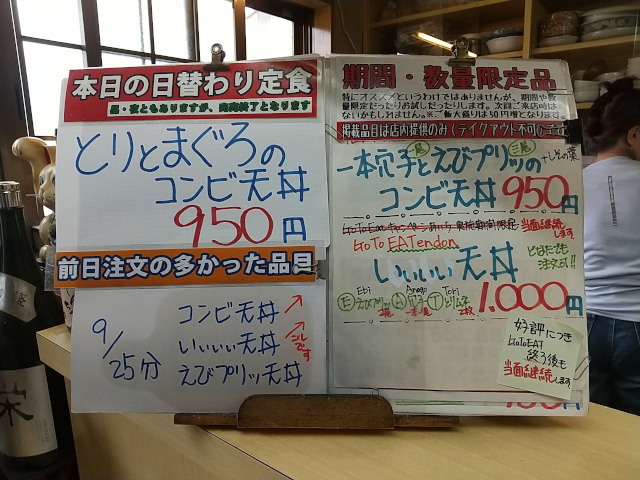 本日の日替わり定食
昼・夜ともありますが、売売終了となります
とりとまぐろの
コンビ天丼
950円
前日注文の多かった品目
9/25分
コンビ天丼
いぃぃぃ天丼
えびプリッ天丼
コレです
期間・数量限定品
特にオススメというわけではありませんが、期間や数
量限定だったりお試しだったりします。次はご来店時は
ないかもしれません。※ご飯大盛りは50円増となります。
掲載品目は店内提供のみ(テイクアウト不可)
一本穴子と二尾えびプリッの
+しその葉
コンビ天丼950円
当面継続します。
GoTo EATendon
どなたでも
注文可!!
いぃぃぃ天丼
Ebi Anago Tori
1.000円
好評につき
GoToEAT
終了後も
当面継続します
栄